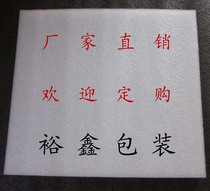 厂家直销
欢迎定购
裕鑫包装